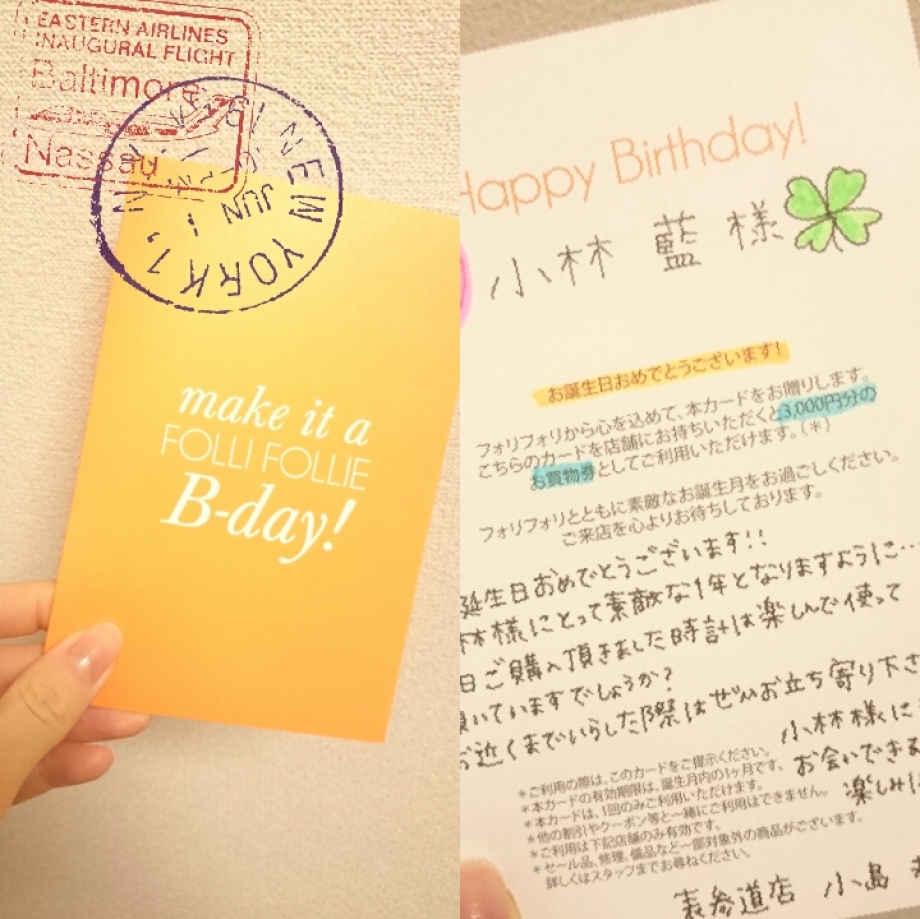 EASTERN AIRLINES
INAUGURAL FLIGHT
Baltimore
Nassau
NEW YORK 1, N
JUN 1
make it a
FOLLI FOLLIE
B-day!
Happy Birthday!
小林 藍 様
お誕生日おめでとうございます!
フォリフォリから心を込めて、本カードをお贈りします。
こちらのカードを店舗にお持ちいただくと3,000円分の
お買物券としてご利用いただけます。(*)
フォリフォリとともに素敵なお誕生月をお過ごしください。
ご来店を心よりお待ちしております。
誕生日おめでとうございます!!
林様にとって素敵な1年となりますように…
日ご購入頂きました時計は楽しんで使って
頂いていますでしょうか?
お近くまでいらした際はぜひお立ち寄り下さ
小林様に
お会いできる
楽しみに
*ご利用の際は、このカードをご提示ください。
*本カードの有効期限は、誕生月内の1ヶ月です。
*本カードは、1回のみご利用いただけます。
*他の割引やクーポン等と一緒にご利用はできません。
*ご利用は下記店舗のみ有効です。
*セール品、修理、備品など一部対象外の商品がございます。
詳しくはスタッフまでお尋ねください。
表参道店 小島